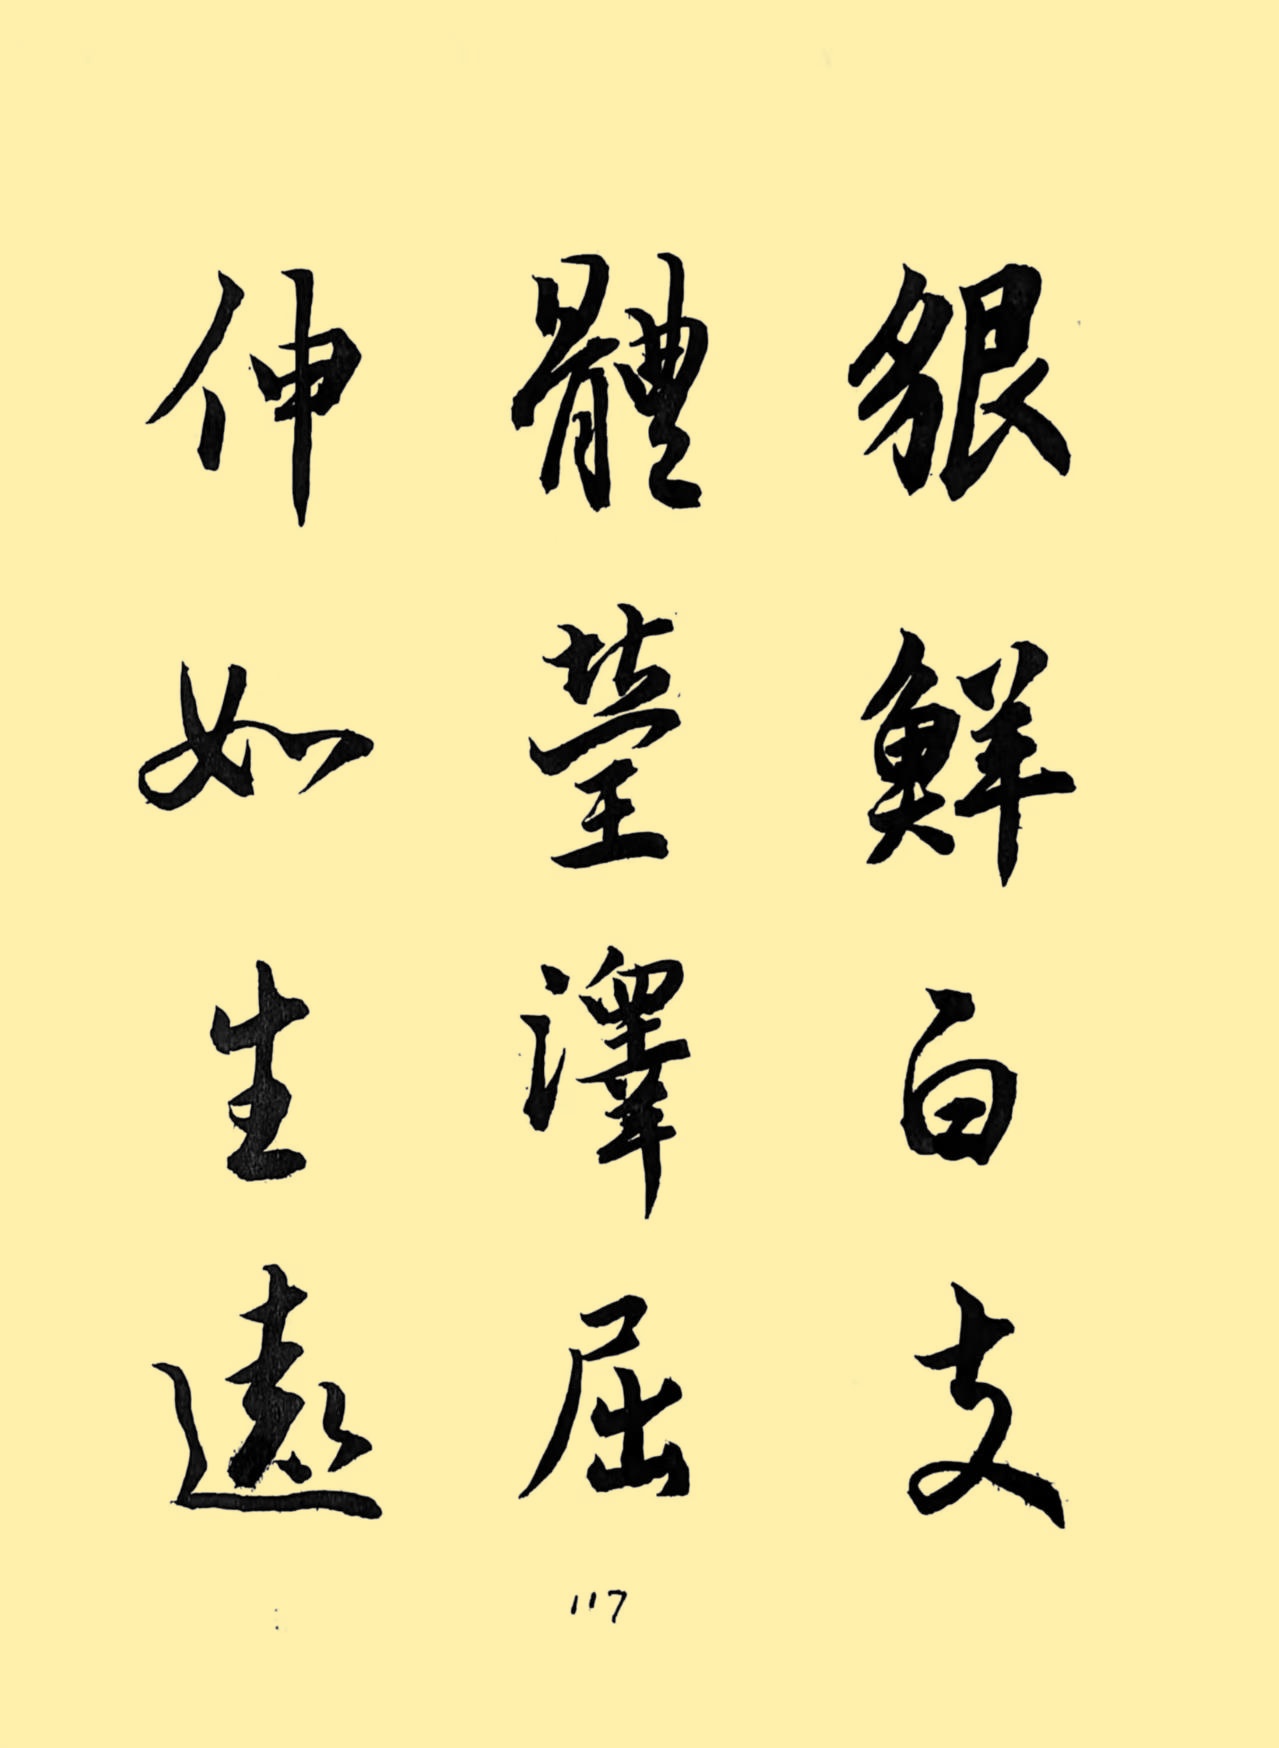 貌鮮白支
體瑩澤屈
伸如生遠
117